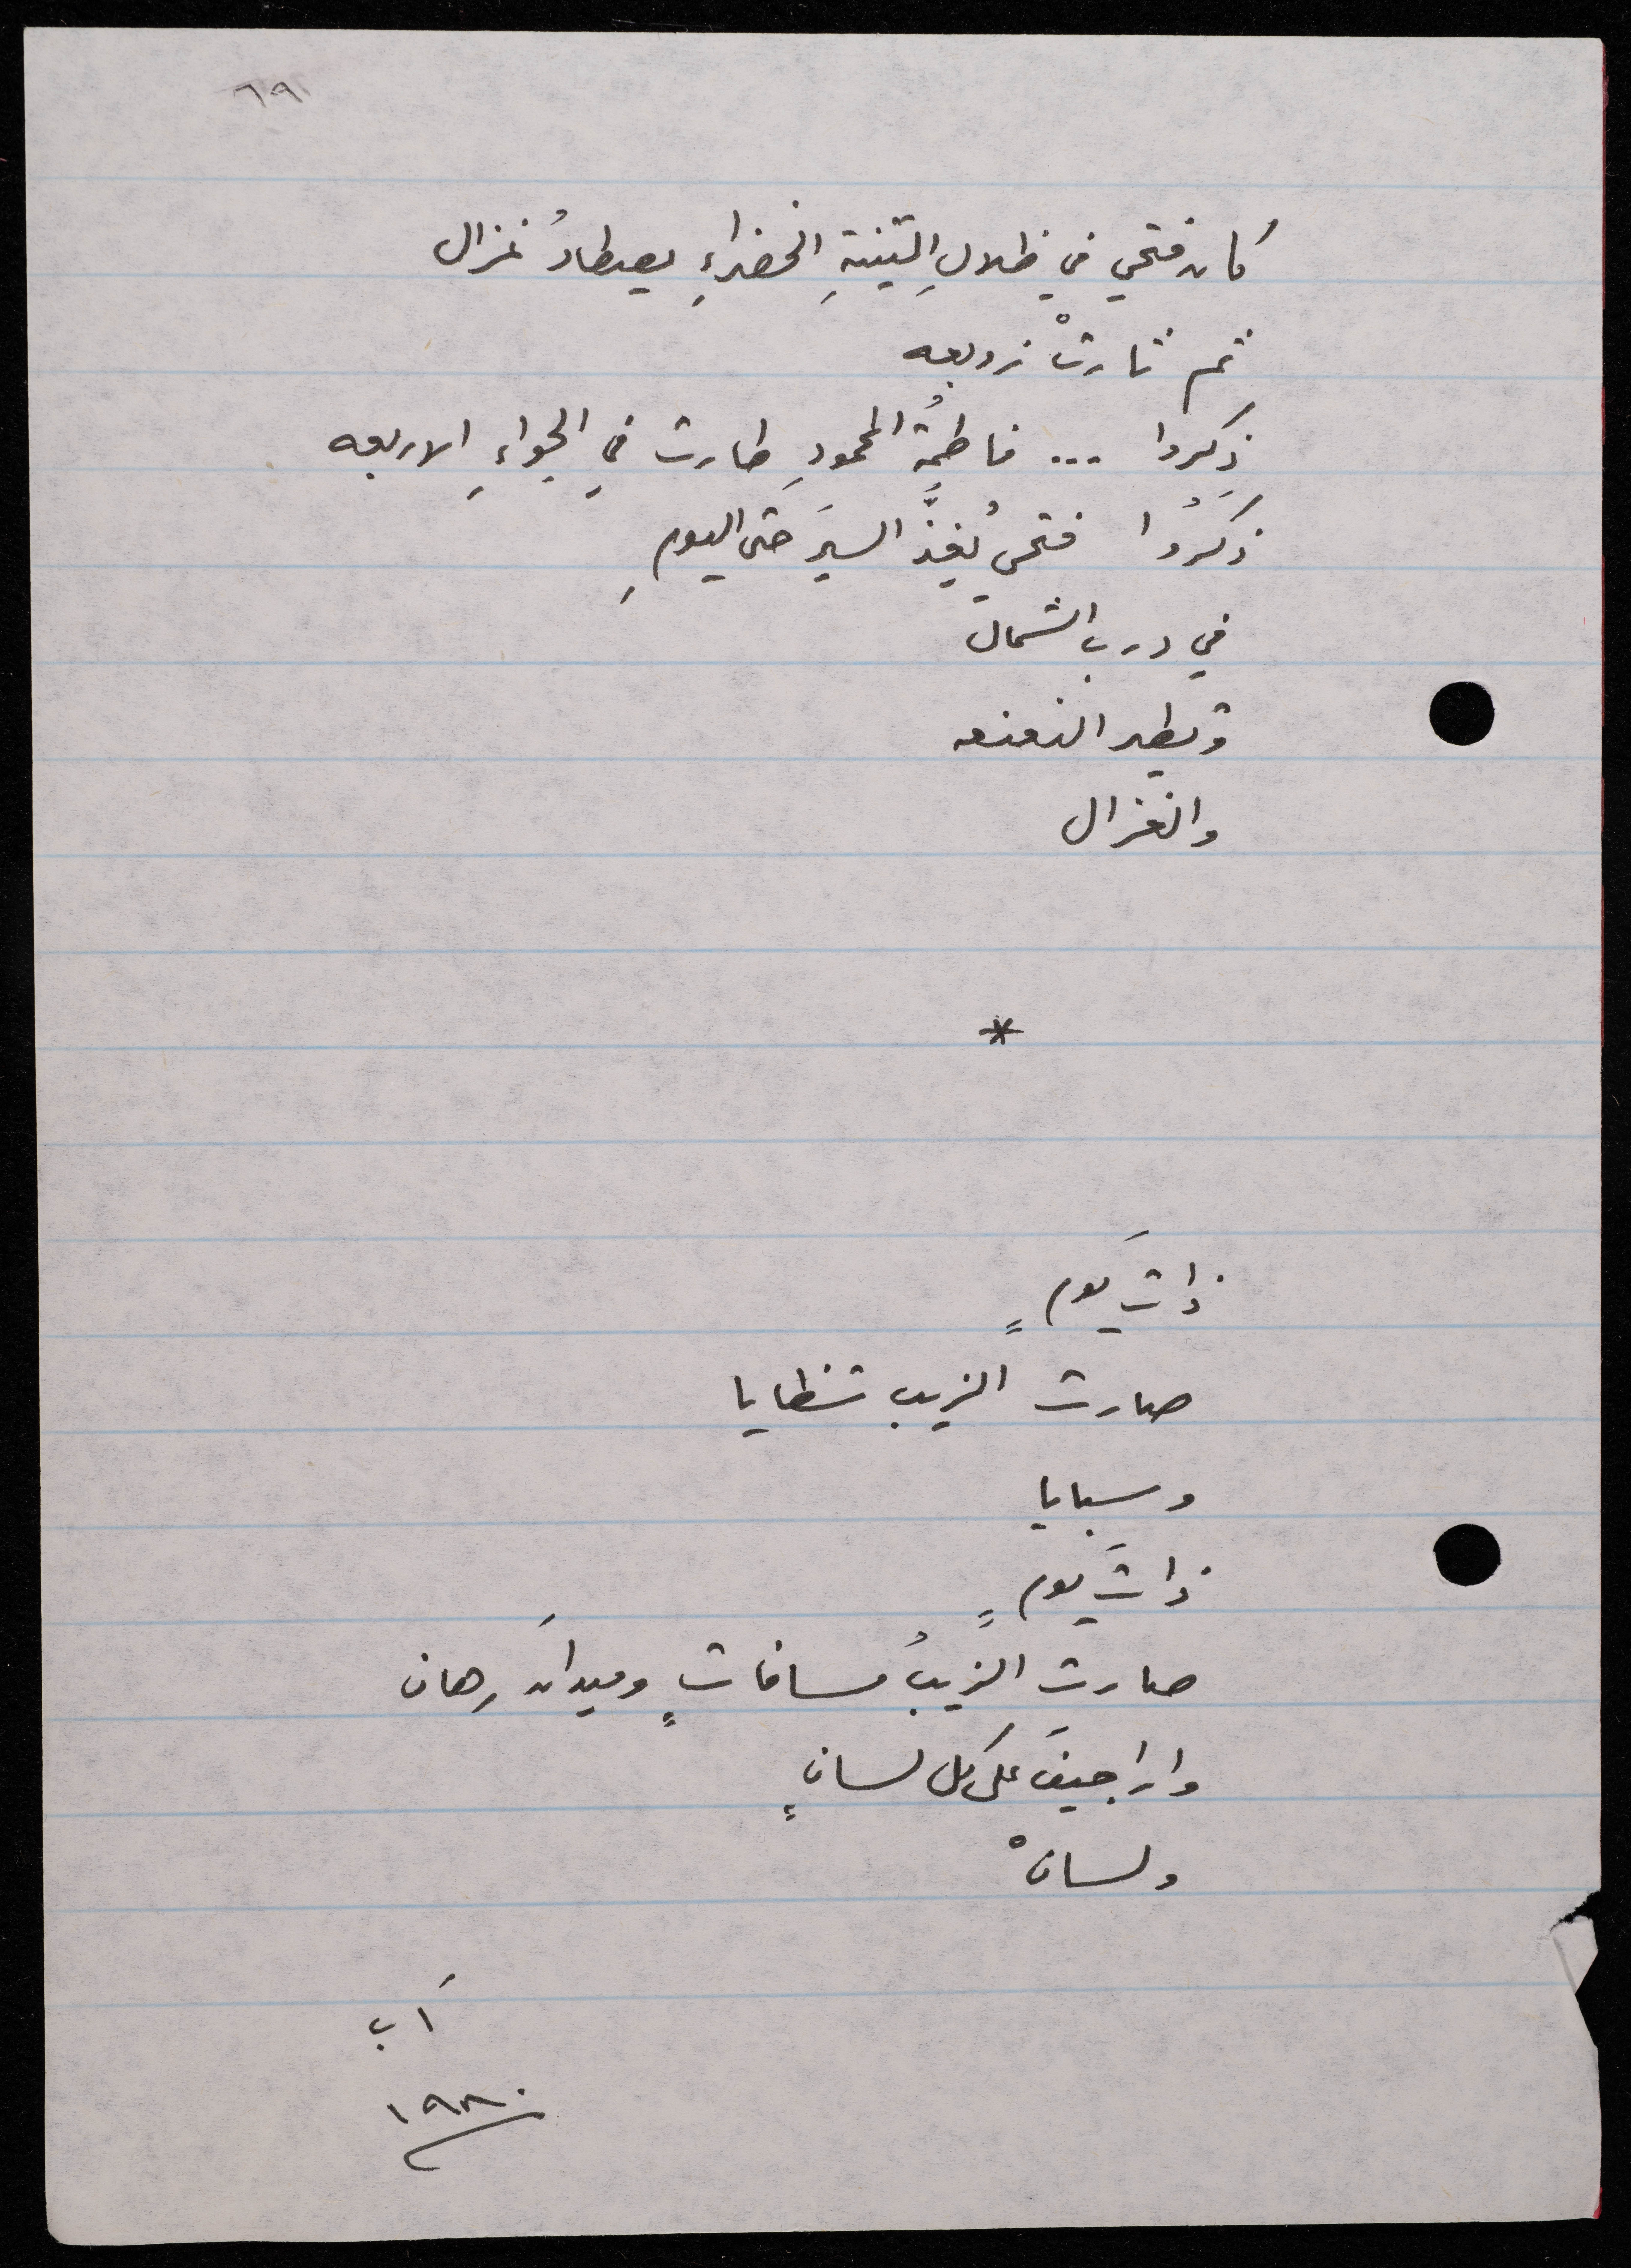 ٦٩
كان فتحي في ظلالِ التينةِ الخضراءِ يصطادُ غزال
ثم ثارتْ زوبعه
ذكروا ... فاطمةُ المحمودِ طارت في الجواءِ الاربعه
ذكروا فتحي يُغِذُّ السيرَ حتى اليومِ
في درب الشمال
وتطير النعنعه
والغزال
*
ذاتَ يومٍ
صارت الزيب شظايا
وسبايا
ذاتَ يومٍ
صارت الزيبُ مسافاتٍ وميدانَ رِهان
واراجيفَ على كل لسانٍ
ولسانْ
آب
١٩٨٠